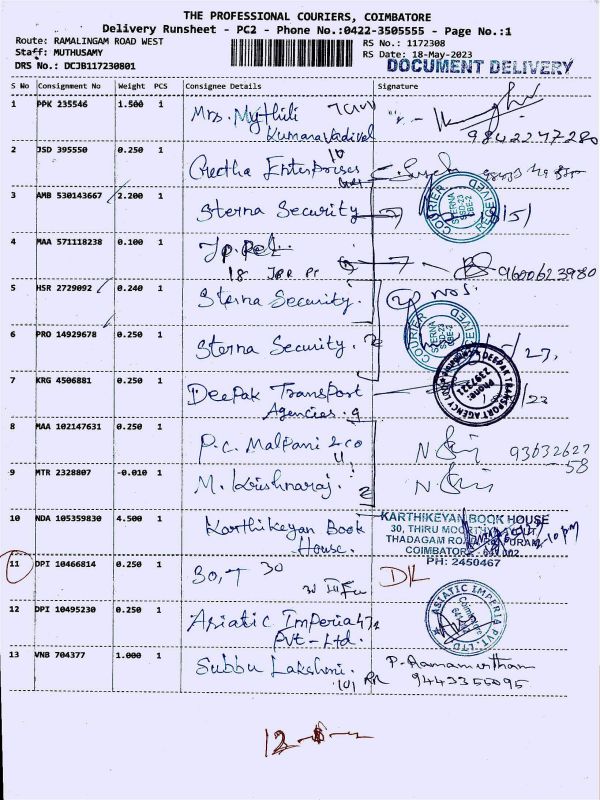 THE PROFESSIONAL COURIERS, COIMBATORE
Delivery Runsheet - PC2 - Phone No.:0422-3505555 - Page No.:1
Route: RAMALINGAM ROAD WEST
RS No.: 1172308
Staff: MUTHUSAMY
RS Date: 18-May-2023
DRS No.: DCJB117230801
DOCUMENT DELIVERY
S No Consignment No Weight PCS Consignee Details Signature
1 PPK 235546 1.500 1 Mrs. Mythili
Kumaravadivel
9842247280
2 JSD 395550 0.250 1 Geetha Enterprises
3 AMB 530143667 2.200 1 Sterna Security
COURIER RECEIVED STERNA SBD-23 CBE-2
4 MAA 571118238 0.100 1
18 9600623980
5 HSR 2729092 0.240 1 Sterna Security.
6 PRO 14929678 0.250 1 Sterna Security.
COURIER RECEIVED STERNA SBD-23 CBE-2
7 KRG 4506881 0.250 1 Deepak Transport
Agencies. 9
DEEPAK TRANSPORT AGENCY
8 MAA 102147631 0.250 1 P.C. Malpani & co
93632627
58
9 MTR 2328807 -0.010 1 M. Krishnaraj.
10 NDA 105359830 4.500 1 Karthikeyan Book
House.
KARTHIKEYAN BOOK HOUSE
30, THIRU
THADAGAM ROAD
COIMBATORE - 641 002
PH: 2450467
11 DPI 10466814 0.250 1 30, T 30
12 DPI 10495230 0.250 1 Asiatic Imperia
Pvt-Ltd.
ASIATIC IMPERIA PVT. LTD
13 VNB 704377 1.000 1 Subbu Lakshmi.
P. Ramamurtham
9443355095